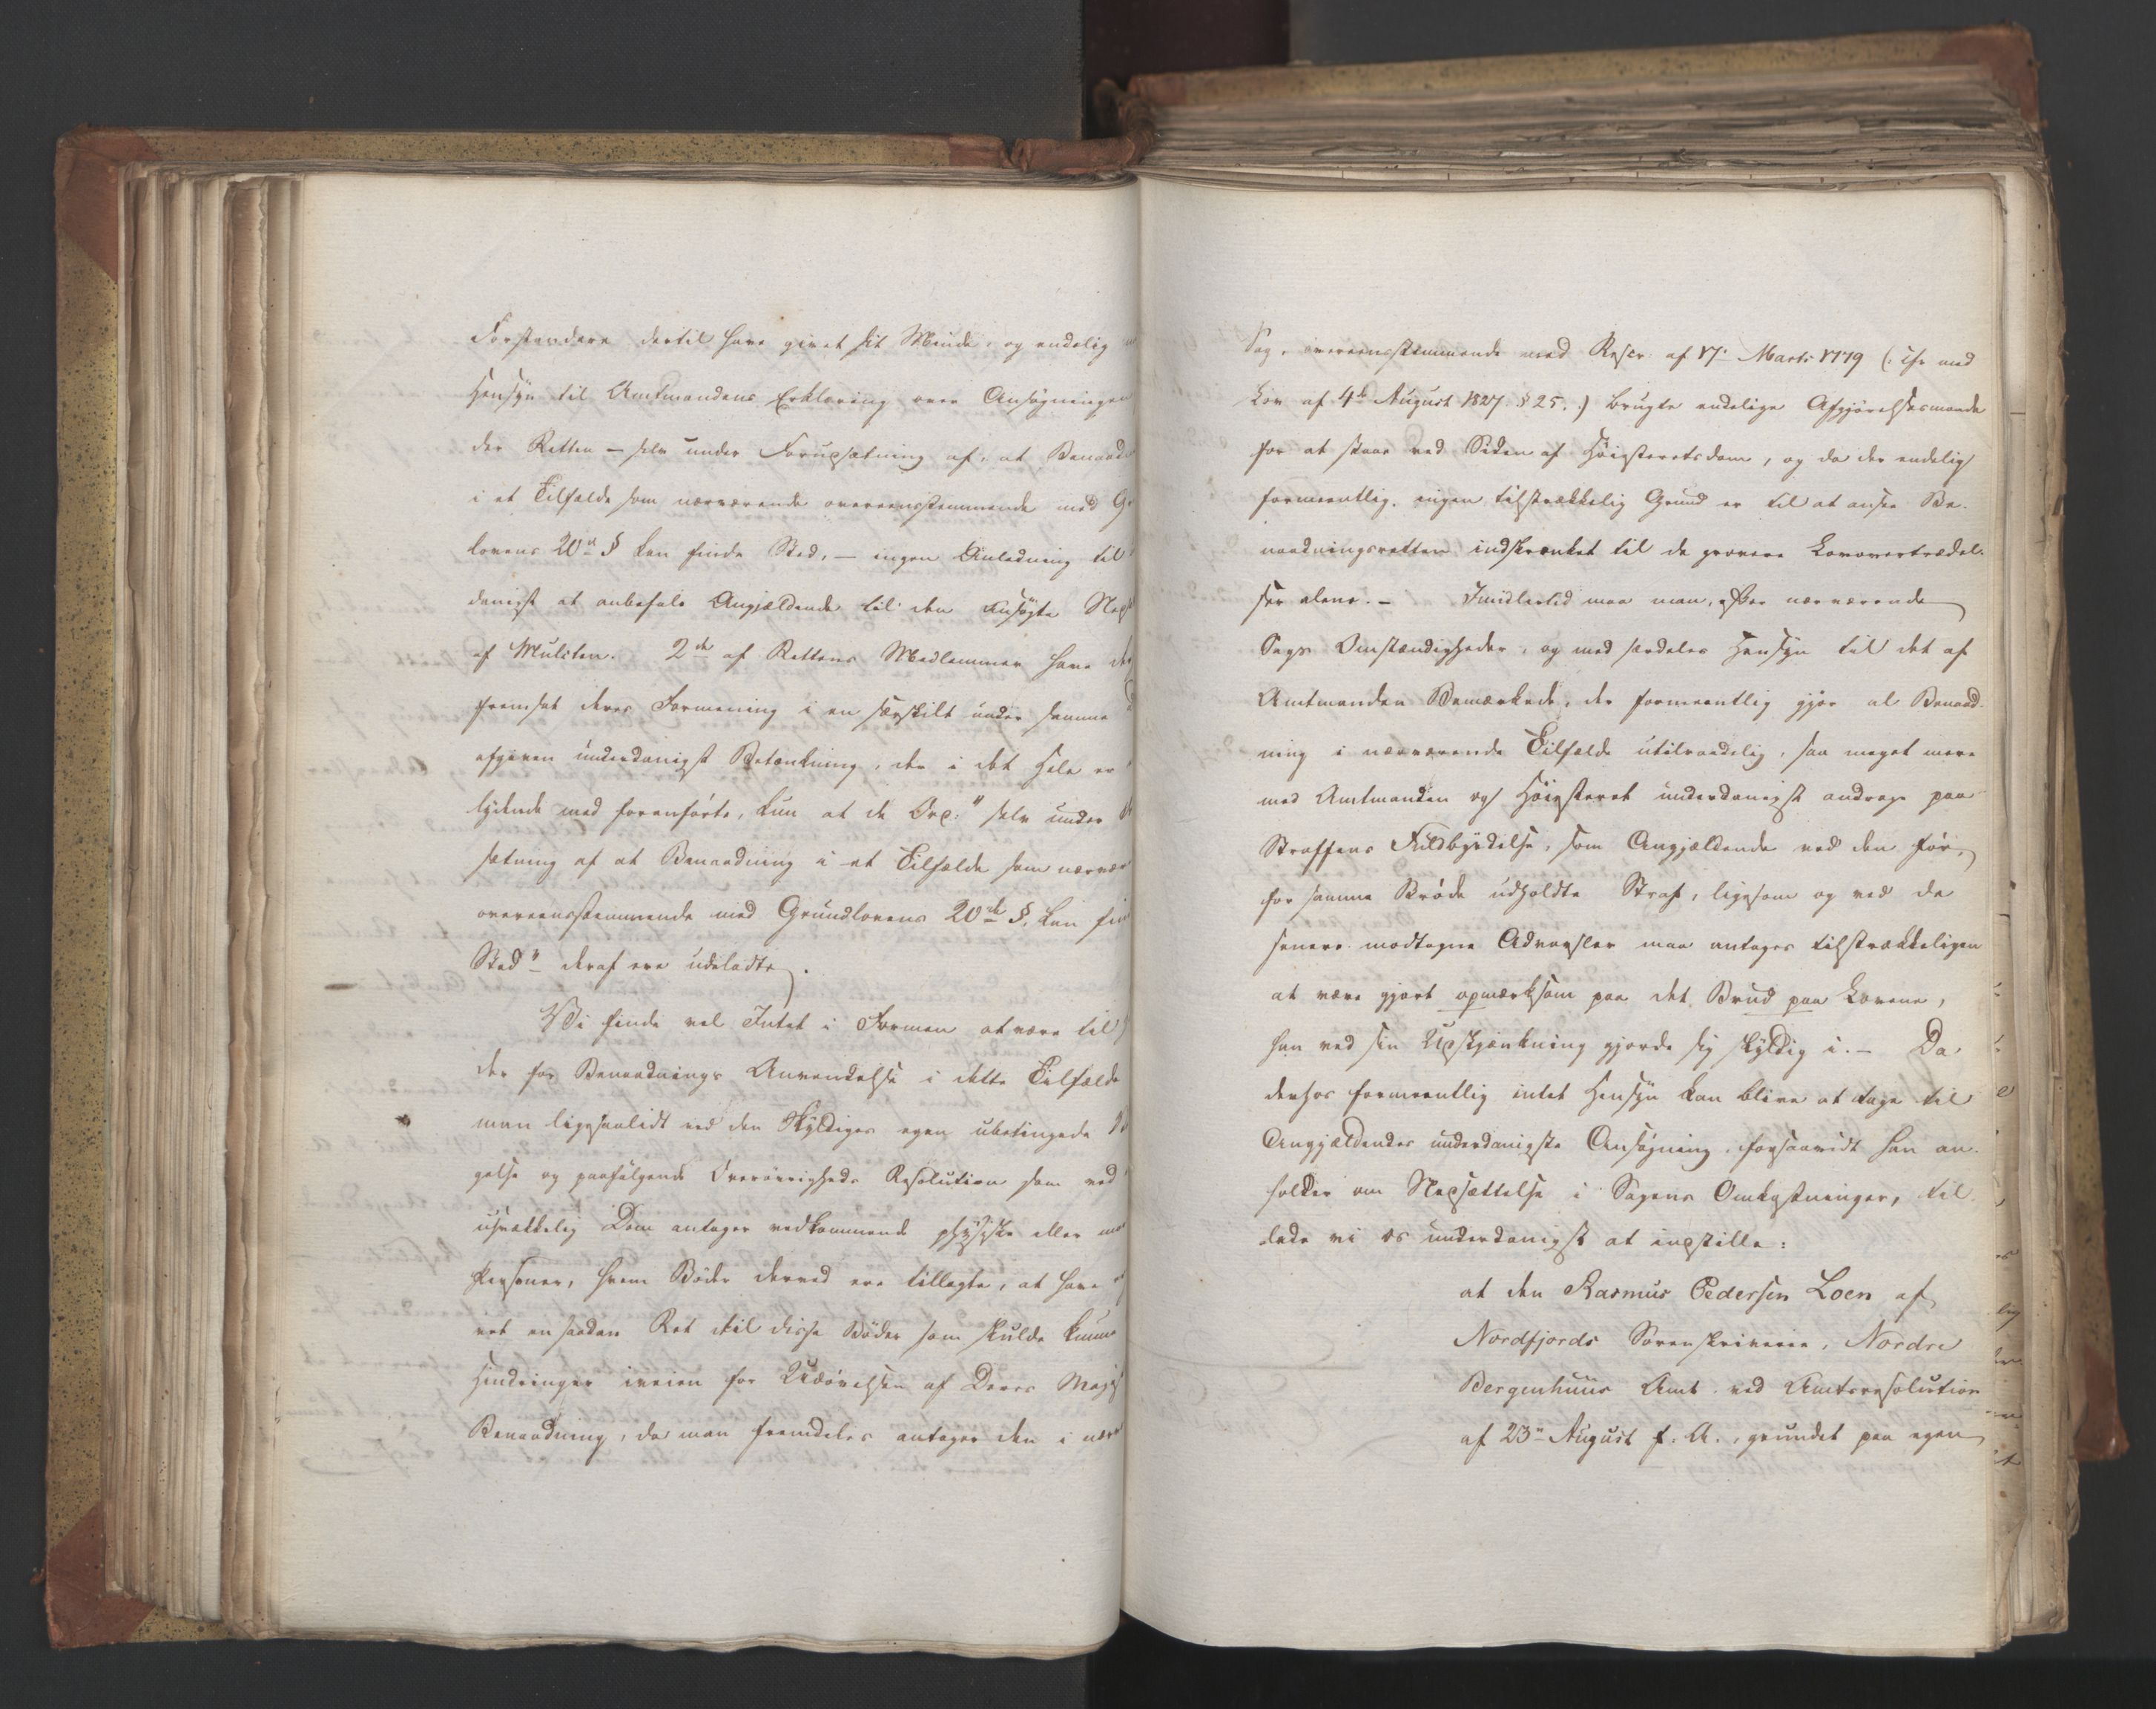 Forstandere dertil have givet sit Minde, og endelig
Hensyn til Amtmandens Erklæring over Ansøgningen
der Retten – selv under Forudsætning af, at Benaad
i et Tilfælde som nærværende overeensstemmende med Gr
lovens 20de § kan finde Sted, – ingen Anledning til
danigst at anbefale Angjældende til den ansøgte
af Mulcten. 2de af Rettens Medlemmer have
fremsat deres Formening i en særskilt under samme
afgiven underdanigst Betænkning, der i det Hele er
lydende med foranførte, kun at de Ord: "selv under
sætning af at Benaadning i et Tilfælde som nærvær
overeensstemmende med Grundlovens 20de §, kan fin
Sted" deraf ere udeladte.
Vi finde vel Intet i Formen at være til
der for Benaadnings Anvendelse i dette Tilfælde
man ligesaalidt ved den Skyldiges egen ubetingede
gelse og paafølgende Overøvrigheds Resolution som ved
usvækkelig Dom antager vedkommende physiske eller mo
Personer, hvem Bøder derved ere tillagte, at have
vet en saadan Ret til disse Bøder som skulde kunne
Hindringer iveien for Udøvelsen af Deres Majest
Benaadning, da man fremdeles antager den i nær
Sag, overeensstemmende med Rescr. af 17. Marts 1779 (: cfr med
Lov af 4de August 1827 § 25.:) brugte endelige Afgjørelsesmaade
for at staae ved Siden af Høiesteretsdom, og da der endelig
formeentlig ingen tilstrækkelig Grund er til at ansee Be-
naadningsretten indskrænket til de grovere Lovovertrædel-
ser alene. – Imidlertid maa man, efter nærværende
Sags Omstændigheder, og med særdeles Hensyn til det af
Amtmanden Bemærkede, der formeentlig gjør al Benaad-
ning i nærværende Tilfælde utilraadelig, saa meget mere
med Amtmanden og Høiesteret underdanigst andrage paa
Straffens Fuldbyrdelse, som Angjældende ved den før
for samme Brøde udholdte Straf, ligesom og ved de
senere modtagne Advarsler maa antages tilstrækkeligen
at være gjort opmærksom paa det Brud paa Lovene,
han ved sin Udskjænkning gjorde sig skyldig i. – Da
derhos formeentlig intet Hensyn kan blive at tage til
Angjældendes underdanigste Ansøgning, forsaavidt han an-
holder om Nedsættelse i Sagens Omkostninger, til-
lade vi os underdanigst at indstille:
at den Rasmus Pedersen Loen af
Nordfjords Sorenskriverie, Nordre
Bergenhuus Amt ved Amtsresolution
af 23de August f. A., grundet paa egen